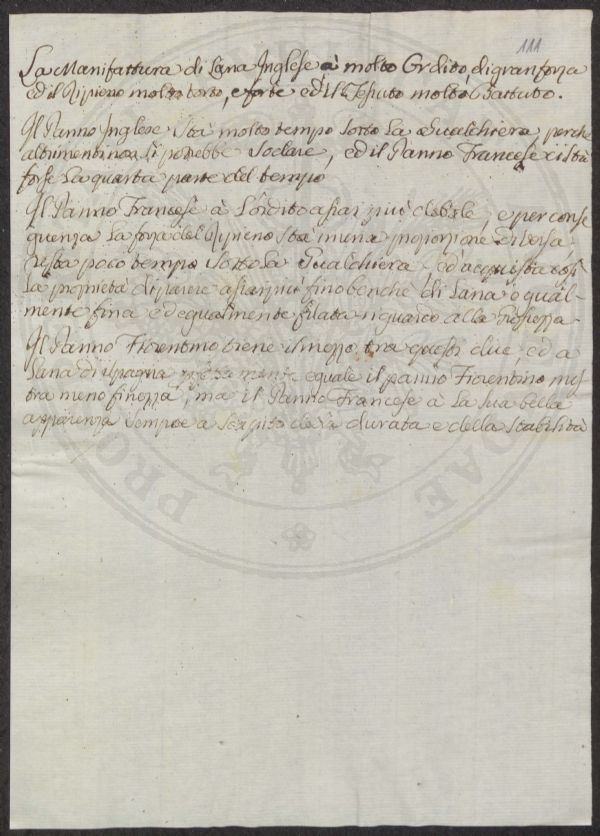 111
La Manifattura di Lana Inglese à molto Ordito, di gran forza
ed il Ripieno molto torto, e forte ed il Tessuto molto Battuto.
Il Panno Inglese stà molto tempo sotto La Gualchiera, perche
altrimenti non si potrebbe sodare, ed il Panno Francese ci stà
forse La quarta parte del tempo
Il Panno Francese à L'ordito assai più debole, e per conse
guenza La forza del Ripieno stà in una proporzione diversa,
resta poco tempo sotto La Gualchiera ed acquista così
La proprietà di parere assai più fino benche di Lana egual-
mente fina ed egualmente filata riguardo alla
Il Panno Fiorentino tiene il mezzo tra questi due ed a
Lana di Spagna eguale il panno Fiorentino mos
tra meno finezza, ma il Panno Francese à La sua bella
apparenza sempre a scapito della durata e della stabilità
PRO
DAE